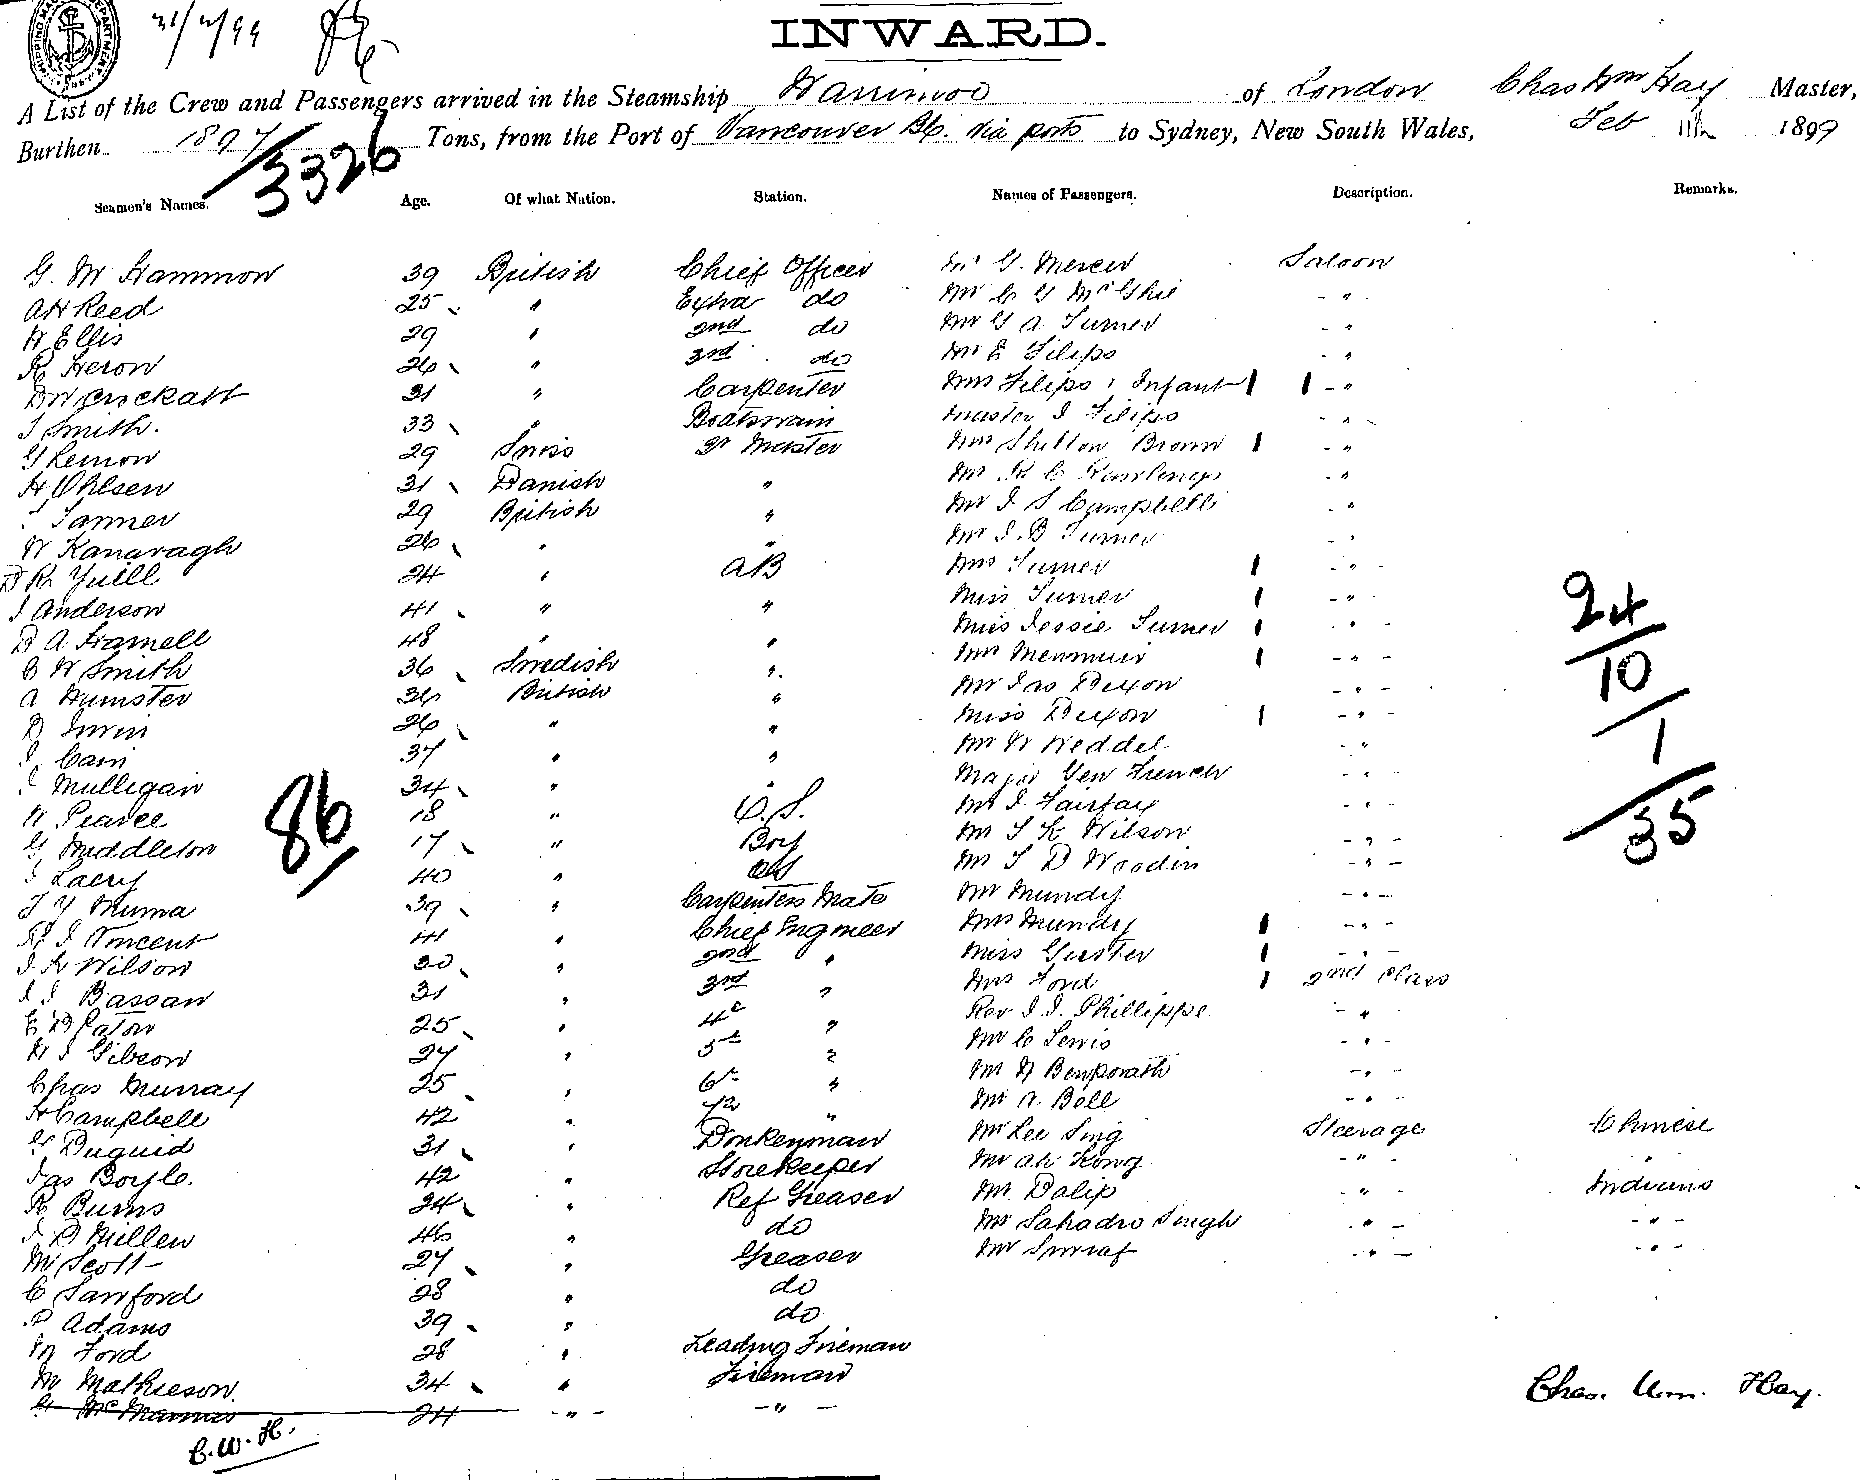 INWARD.
A List of the Crew and Passengers arrived in the Steamship Warrimoo of London Chas Wm Hay Master,
Burthen 1897/3326 Tons, from the Port of Vancouver BC. via ports to Sydney, New South Wales, Feb 1899
Seamen's Names. Age. Of what Nation. Station. Names of Passengers. Description. Remarks.
G. M Hammon 39 British Chief Officer Mr G. Mercer Saloon
A H Reed 25 " Extra do Mr C G McGhie "
W Ellis 29 " 2nd do Mr G A Turner "
R Heron 26 " 3rd do Mr E Filips "
31 " Carpenter Mrs Filips & Infant "
J Smith. 33 " Boatswain Master J Filips "
G Lemon 29 Swiss Qr Master Mrs Shilton Brown "
H Ohlsen 31 Danish " Mr H C Rawlings "
Tanner 29 British " Mr J S Campbell "
W Kanavagh 26 " " Mr J B Turner "
D R Yuill 24 " AB Mrs Turner "
J Anderson 41 " " Miss Turner "
D A Hamell 48 " " Miss Jessie Turner "
B W Smith 36 Swedish " Mrs Menmuir "
A Humster 36 British " Mr Jas Dixon "
D Irwin 26 " " Miss Dixon "
J Cain 37 " " Mr W Weddel "
J Mulligan 34 " " Major Gen French "
W Pearce 18 " O.S. Mr J Fairfax "
G Middleton 17 " Boy Mr T K Wilson "
J Lacey 40 " Mr T D Woodin "
T Y Muma 39 " Carpenters Mate Mr Mundy "
H J Vincent 41 " Chief Engineer Mrs Mundy "
J K Wilson 30 " 2nd " Miss "
J J Bassan 31 " 3rd " Mrs Ford 2nd Class
E D Paton 25 " 4th " Rev J J. Phillippe "
W J Gibson 27 " 5th " Mr C Lewis "
Chas Murray 25 " 6th " Mr W Benporath "
H Campbell 42 " 7th " Mr A. Bell "
G Duguid 31 " Donkeyman Mr Lee Sing Steerage Chinese
Jas Boyle. 42 " Storekeeper Mr Ah Kong " "
R Burns 24 " Ref Greaser Mr. Dalip " Indians
J D Millen 46 " do Mr Sahadro Singh " "
M Scott 27 " Greaser Mr " "
C Sanford 28 " do
P Adams 39 " do
W Ford 28 " Leading Fireman
M Mathieson. 34 " Fireman
24 " "
86
24
10
1
35
Chas. Wm. Hay.
C.W.H.